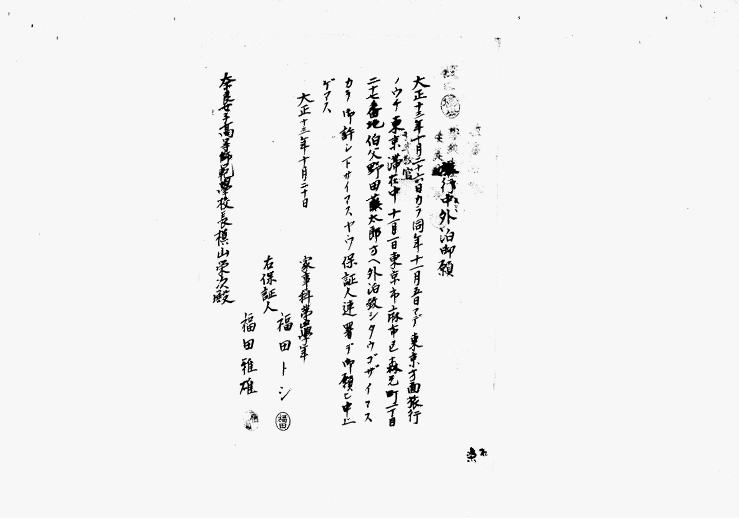 旅行中外泊御願
大正十三年十月二十六日カラ同年十一月五日マデ東京方面旅行
ノウチ東京滞在中十一月一日東京市麻布区森元町二丁目
二十七番地伯父野田藤太郎方ヘ外泊致シタウゴザイマス
カラ御許シ下サイマスヤウ保証人連署デ御願ヒ申上
ゲマス
大正十三年十月二十日
家事科第四学年
福田トシ
福田
右保証人
福田雅雄
奈良女子高等師範学校長槇山栄次殿